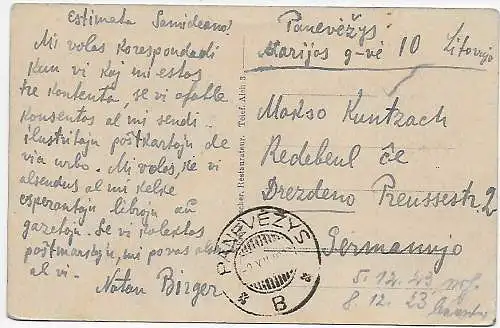 Estimata Samideano!
Mi volas korespondadi
kun vi kaj mi estos
tre kontenta, se vi afable
konsentos al mi sendi
ilustritajn poŝtkartojn de
via urbo. Mi volas, ke vi
alsendus al mi kelke
esperantajn librojn aŭ
gazetojn. Se vi kolektas
poŝtmarkojn, mi povas
al vi.
Natan Birger
Panevėžys
Marijos g-vė 10 Litovujo
Makso Kuntzach
Redebeul ĉe
Drezdeno Preussestr. 2
Germanujo
PANEVĖŽYS
B
5. 12. 23
8. 12. 23